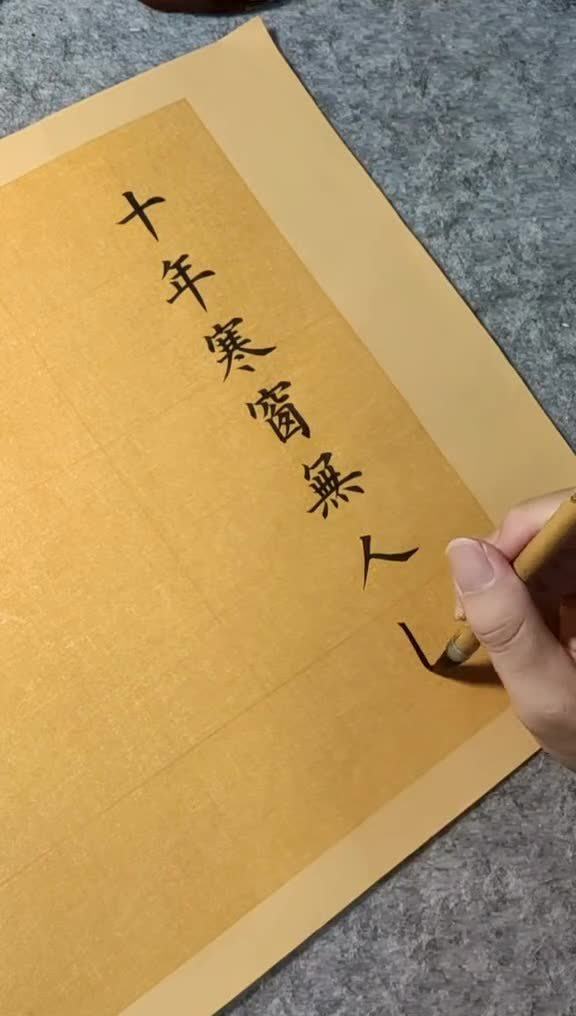 十年寒窗無人